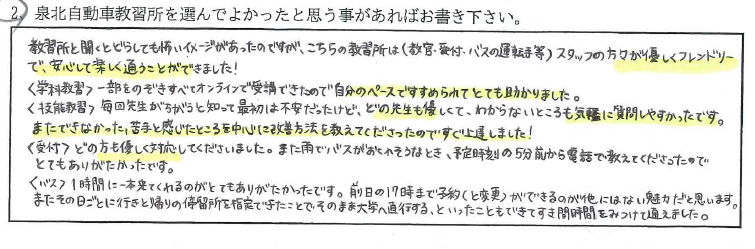 2. 泉北自動車教習所を選んでよかったと思う事があればお書き下さい。
教習所と聞くとどうしても怖いイメージがあったのですが、こちらの教習所は(教官・受付・バスの運転手等)スタッフの方々が優しくフレンドリー
で、安心して楽しく通うことができました!
<学科教習> 一部をのぞきすべてオンラインで受講できたので自分のペースですすめられてとても助かりました。
<技能教習> 毎回先生がちがうと知って最初は不安だったけど、どの先生も優しくて、わからないところも気軽に質問しやすかったです。
またできなかった、苦手と感じたところを中心に改善方法を教えてくださったのですぐ上達しました!
<受付> どの方も優しく対応してくださいました。また雨でバスがおくれそうなとき、予定時刻の5分前から電話で教えてくださったので
とてもありがたかったです。
<バス> 1時間に一本来てくれるのがとてもありがたかったです。前日の17時まで予約(と変更)ができるのが他にはない魅力だと思います。
またその日ごとに行きと帰りの停留所を指定できたことで、そのまま大学へ直行する、といったこともできてすき間時間をみつけて通えました。